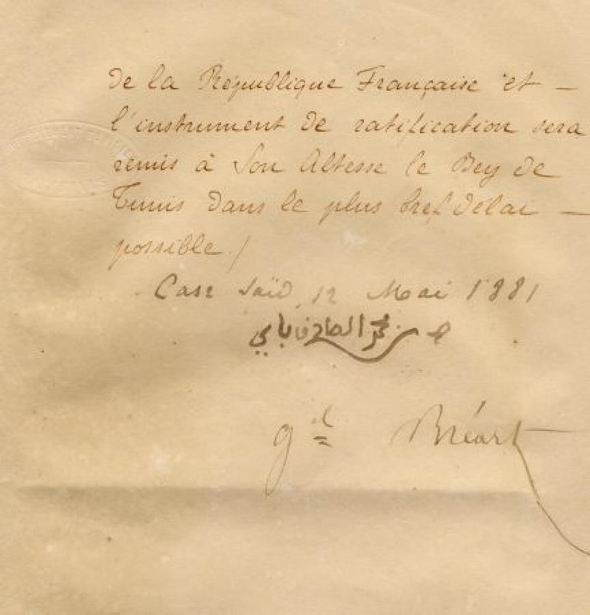 de la République Française et —
l'instrument de ratification sera
remis à Son Altesse le Bey de
Tunis dans le plus bref délai —
possible ./
Casr Saïd, 12 Mai 1881
محمد الصادق باي
g^al Bréart